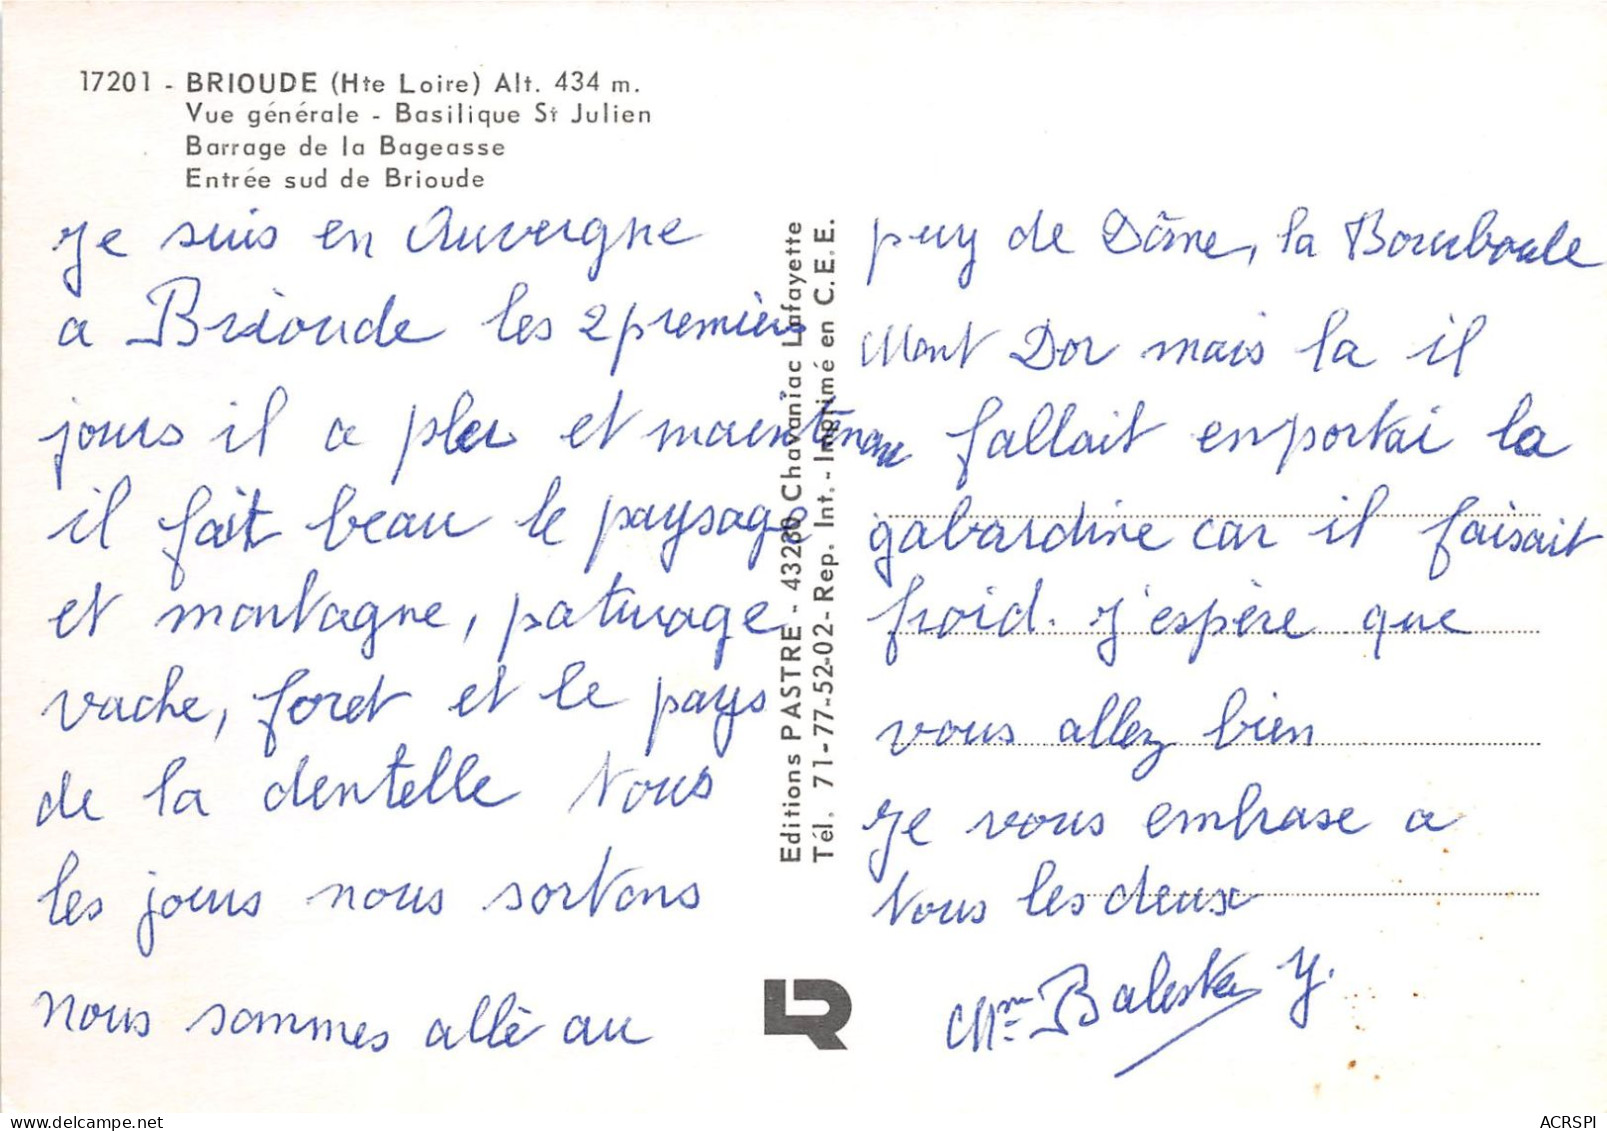 17201 - BRIOUDE (Hte Loire) Alt. 434 m.
Vue générale - Basilique St Julien
Barrage de la Bageasse
Entrée sud de Brioude
Je suis en Auvergne
a Brioude les 2 premiers
jours il a pleu et maintenant
il fait beau le paysage
et montagne, paturage
vache, foret et le pays
de la dentelle tous
les jours nous sortons
nous sommes allè au
Editions PASTRE - 43230 Chavaniac Lafayette
Tél. 71-77-52-02 - Rep. Int. - Imprimé en C.E.E.
puy de Dôme, la Bourboule
Mont Dor mais la il
fallait enportai la
gabardine car il faisait
froid. J'espère que
vous allez bien
Je vous embrase a
tous les deux
Mme Y.
LR
ACRSPI